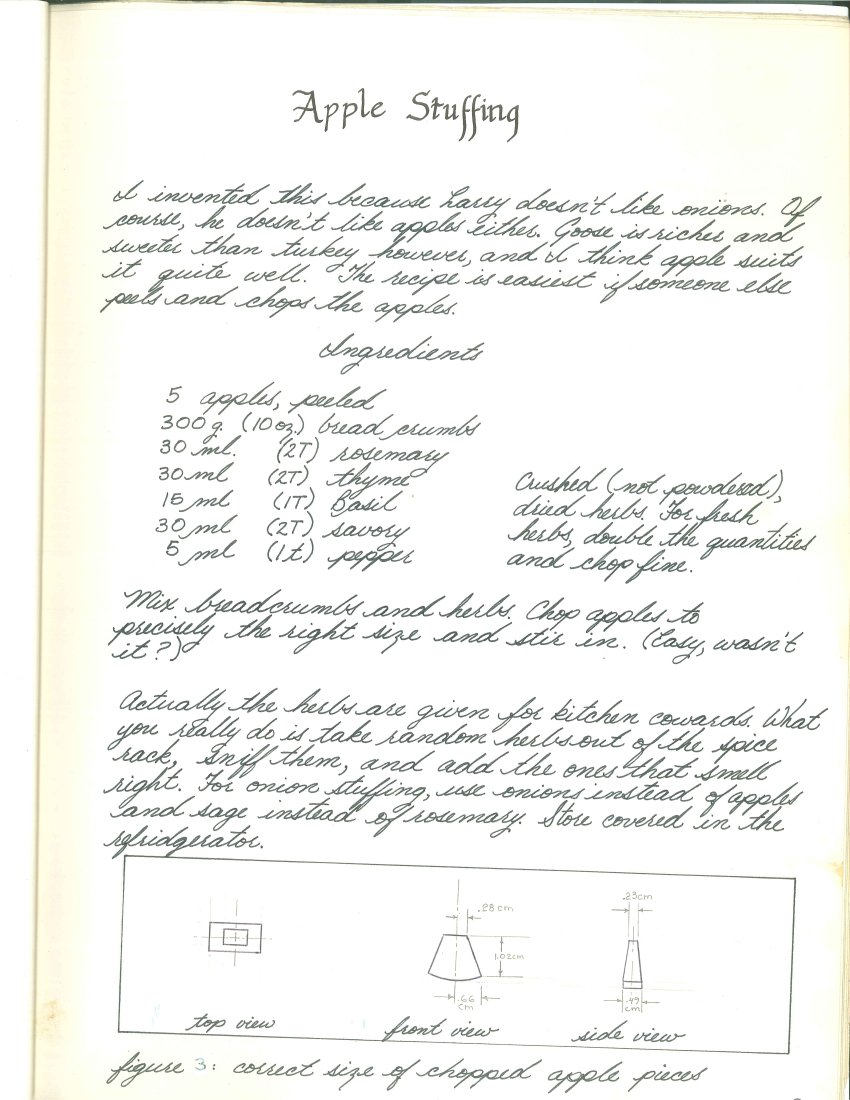 Apple Stuffing
I invented this because Larry doesn't like onions. Of
course, he doesn't like apples either. Goose is richer and
sweeter than turkey however, and I think apple suits
it quite well. The recipe is easiest if someone else
peels and chops the apples.
Ingredients
5 apples, peeled
300g. (10oz.) bread crumbs
30 ml. (2T) rosemary
30 ml (2T) thyme
15 ml (1T) Basil
30 ml (2T) savory
5 ml (1t) pepper
Crushed (not powdered),
dried herbs. For fresh
herbs, double the quantities
and chop fine.
Mix breadcrumbs and herbs. Chop apples to
precisely the right size and stir in. (Easy, wasn't
it?)
Actually the herbs are given for kitchen cowards. What
you really do is take random herbs out of the spice
rack, sniff them, and add the ones that smell
right. For onion stuffing, use onions instead of apples
and sage instead of rosemary. Store covered in the
refridgerator.
.28 cm
.23cm
1.02cm
.66
cm
.49
cm
top view
front view
side view
figure 3: correct size of chopped apple pieces